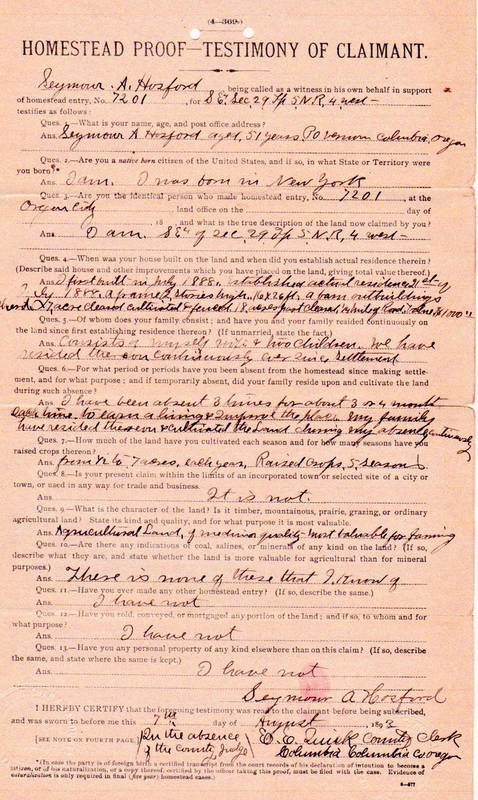 (4—369.)
HOMESTEAD PROOF—TESTIMONY OF CLAIMANT.
Seymour A. Hosford, being called as a witness in his own behalf in support
of homestead entry, No. 7201, for SE¼ Sec. 29 Tp 5 N. R. 4 west
testifies as follows:
Ques. 1.—What is your name, age, and post office address?
Ans. Seymour A Hosford aged, 51 years, PO Vernon Columbia Co Oregon
Ques. 2.—Are you a native born citizen of the United States, and if so, in what State or Territory were
you born?*
Ans. I am. I was born in New York
Ques. 3.—Are you the identical person who made homestead entry, No. 7201, at the
Oregon City land office on the day of
, 18 , and what is the true description of the land now claimed by you?
Ans. I am. SE¼ of sec. 29 Tp 5 N. R, 4 west
Ques. 4.—When was your house built on the land and when did you establish actual residence therein?
(Describe said house and other improvements which you have placed on the land, giving total value thereof.)
Ans. I first built in July 1888. established actual residence of
July 1888. a frame 2 stories high, 16x26 ft, a barn outbuildings
7 acre cleared cultivated & fenced. 18 acres
Ques. 5.—Of whom does your family consist; and have you and your family resided continuously on
the land since first establishing residence thereon? (If unmarried, state the fact.)
Ans. Consists of myself wife & two children. We have
resided thereon continuously ever since settlement
Ques. 6.—For what period or periods have you been absent from the homestead since making settle-
ment, and for what purpose; and if temporarily absent, did your family reside upon and cultivate the land
during such absence?
Ans. I have been absent 3 times for about 3 or 4 months
each time, to earn a living & improve the place. My family
have resided thereon & cultivated the Land during my absence continuously
Ques. 7.—How much of the land have you cultivated each season and for how many seasons have you
raised crops thereon?
Ans. from ½ to 7 acres, each year, Raised crops, 5 seasons
Ques. 8.—Is your present claim within the limits of an incorporated town or selected site of a city
or town, or used in any way for trade and business.
Ans. It is not.
Ques. 9.—What is the character of the land? Is it timber, mountainous, prairie, grazing, or ordinary
agricultural land? State its kind and quality, and for what purpose it is most valuable.
Ans. Agricultural Land, of medium quality—most valuable for farming
Ques. 10.—Are there any indications of coal, salines, or minerals of any kind on the land? (If so,
describe what they are, and state whether the land is more valuable for agricultural than for mineral
purposes.)
Ans. There is none of these that I know of
Ques. 11.—Have you ever made any other homestead entry? (If so, describe the same.)
Ans. I have not
Ques. 12.—Have you sold, conveyed, or mortgaged any portion of the land; and if so, to whom and for
what purpose?
Ans. I have not
Ques. 13.—Have you any personal property of any kind elsewhere than on this claim? (If so, describe
the same, and state where the same is kept.)
Ans. I have not
Seymour A Hosford
I HEREBY CERTIFY that the foregoing testimony was read to the claimant before being subscribed,
and was sworn to before me this 7th day of August, 1893
[SEE NOTE ON FOURTH PAGE.]
In the absence
of the County Judge
E. E. Quick County Clerk
Columbia Co Oregon
*(In case the party is of foreign birth a certified transcript from the court records of his declaration of intention to become a
citizen, or of his naturalization, or a copy thereof, certified by the officer taking this proof, must be filed with the case. Evidence of
naturalization is only required in final (five year) homestead cases.)